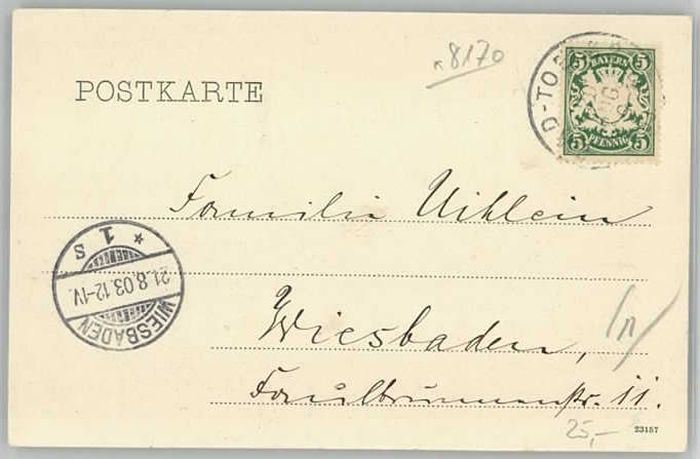 8170
5 BAYERN 5
5 PFENNIG 5
D-TO
POSTKARTE
Familie Uihlein
WIESBADEN
* 1 s
21.8.03.12-1V.
Wiesbaden,
Faulbrunnenstr. 11.
25,-
23157